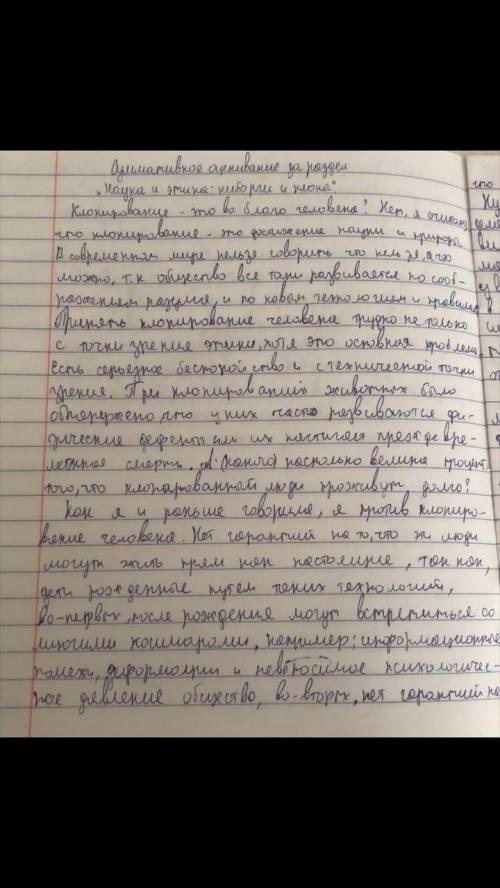 Суммативное оценивание за раздел
„Наука и этика: киборги и клоны"
Клонирование - это во благо человека? Нет, я считаю,
что клонирование - это достижение науки и природы.
В современном мире нельзя говорить что нельзя, а что
можно, т.к общество все таки развивается по сооб-
ражениям разума, и по новым технологиям и правилам.
Принять клонирование человека трудно не только
с точки зрения этики, хотя это основная проблема
Есть серьезное беспокойство и с технической точки
зрения. При клонировании животных было
обнаружено, что у них часто развиваются фи-
зические дефекты или их настигает преждевре-
менная смерть. А (каков) насколько велика процент
того, что клонированный люди проживут долго?
Как я и раньше говорила, я против клониро-
вание человека. Нет гарантий на то, что эти люди
могут жить прям как настоящие, так как,
дети рожденные путем таких технологий,
во-первых, после рождения могут встретиться со
многими кошмарами, например: информационные
помехи, деформации и невыносимое психологичес-
кое давление общество, во-вторых, нет гарантий на
что